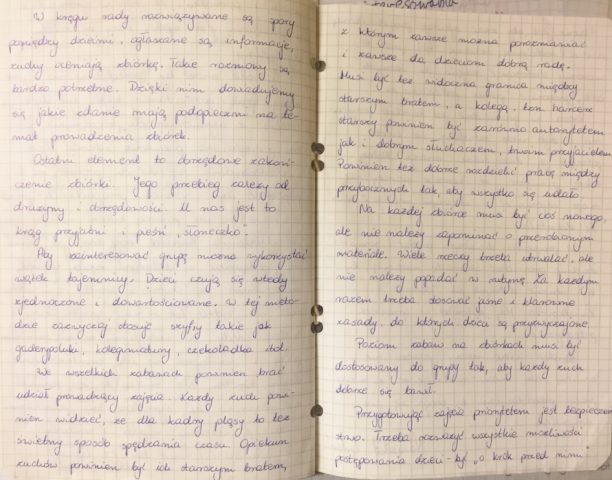 W kręgu rady rozwiązywane są spory
pomiędzy dziećmi, ogłaszane są informacje,
zuchy oceniają zbiórkę. Takie rozmowy są
bardzo potrzebne. Dzięki nim dowiadujemy
się jakie zdanie mają podopieczni na te-
mat prowadzenia zbiórek.
Ostatni element to obrzędowe zakoń-
czenie zbiórki. Jego przebieg zależy od
drużyny i obrzędowości. U nas jest to
krąg przyjaźni i pieśń "słoneczko".
Aby zainteresować grupę można wykorzystać
wątek tajemnicy. Dzieci czują się wtedy
zjednoczone i dowartościowane. W tej meto-
dzie zazwyczaj stosuje szyfry takie jak
gaderypoluki, czekoladka itd.
We wszelkich zabawach powinien brać
udział prowadzący zajęcia. Każdy zuch powi-
nien widzieć, że dla kadry pląsy to też
świetny sposób spędzania czasu. Opiekun
zuchów powinien być ich starszym bratem,
z którym zawsze można porozmawiać
i zawsze da dzieciom dobrą radę.
Musi być też widoczna granica między
starszym bratem, a kolegą, ten harcerz
starszy powinien być zarówno autorytetem
jak i dobrym słuchaczem, przyjacielem.
Powinien też dobrze rozdzielić pracę między
przybocznych tak, aby wszystko się udało.
Na każdej zbiórce musi być coś nowego,
ale nie należy zapominać o przerobionym
materiale. Wiele rzeczy trzeba utrwalać, ale
nie należy popadać w rutynę. Za każdym
razem trzeba stosować jasne i klarowne
zasady, do których dzieci są przyzwyczajone.
Poziom zabaw na zbiórkach musi być
dostosowany do grupy tak, aby każdy zuch
dobrze się bawił.
Przygotowując zajęcia priorytetem jest bezpieczeń-
stwo. Trzeba rozważyć wszystkie możliwości
postępowania dzieci - być "o krok przed nimi".